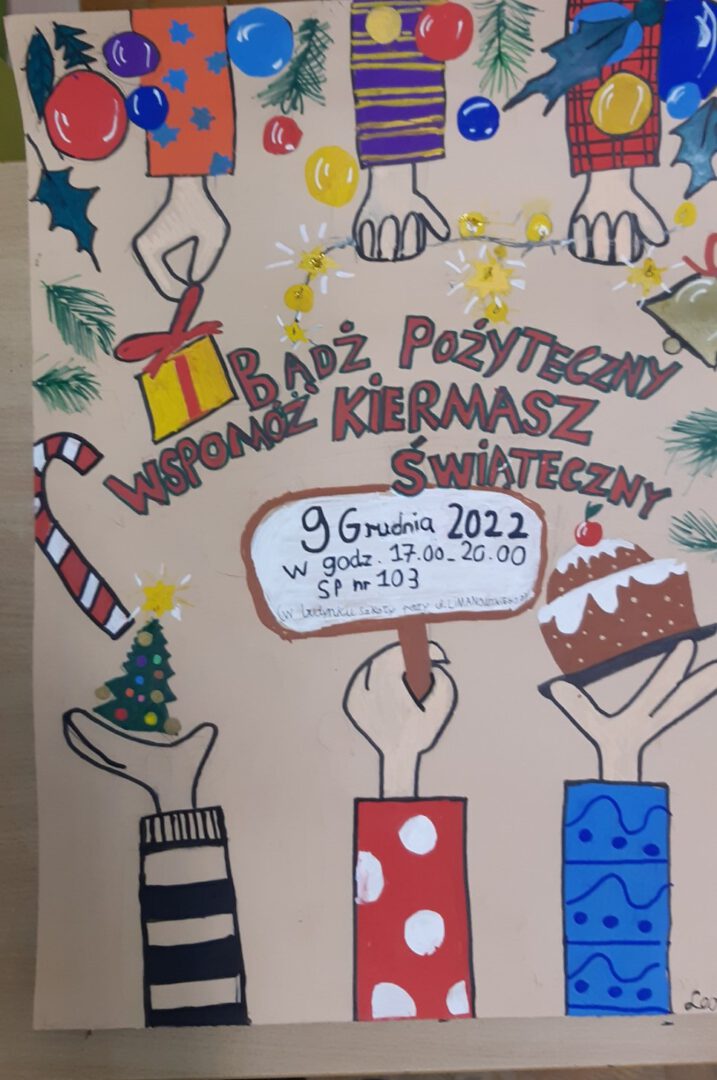 BĄDŹ POŻYTECZNY
WSPOMÓŻ KIERMASZ
ŚWIĄTECZNY
9 Grudnia 2022
w godz. 17.00-20.00
SP nr 103
(w budynku szkoły przy ul.